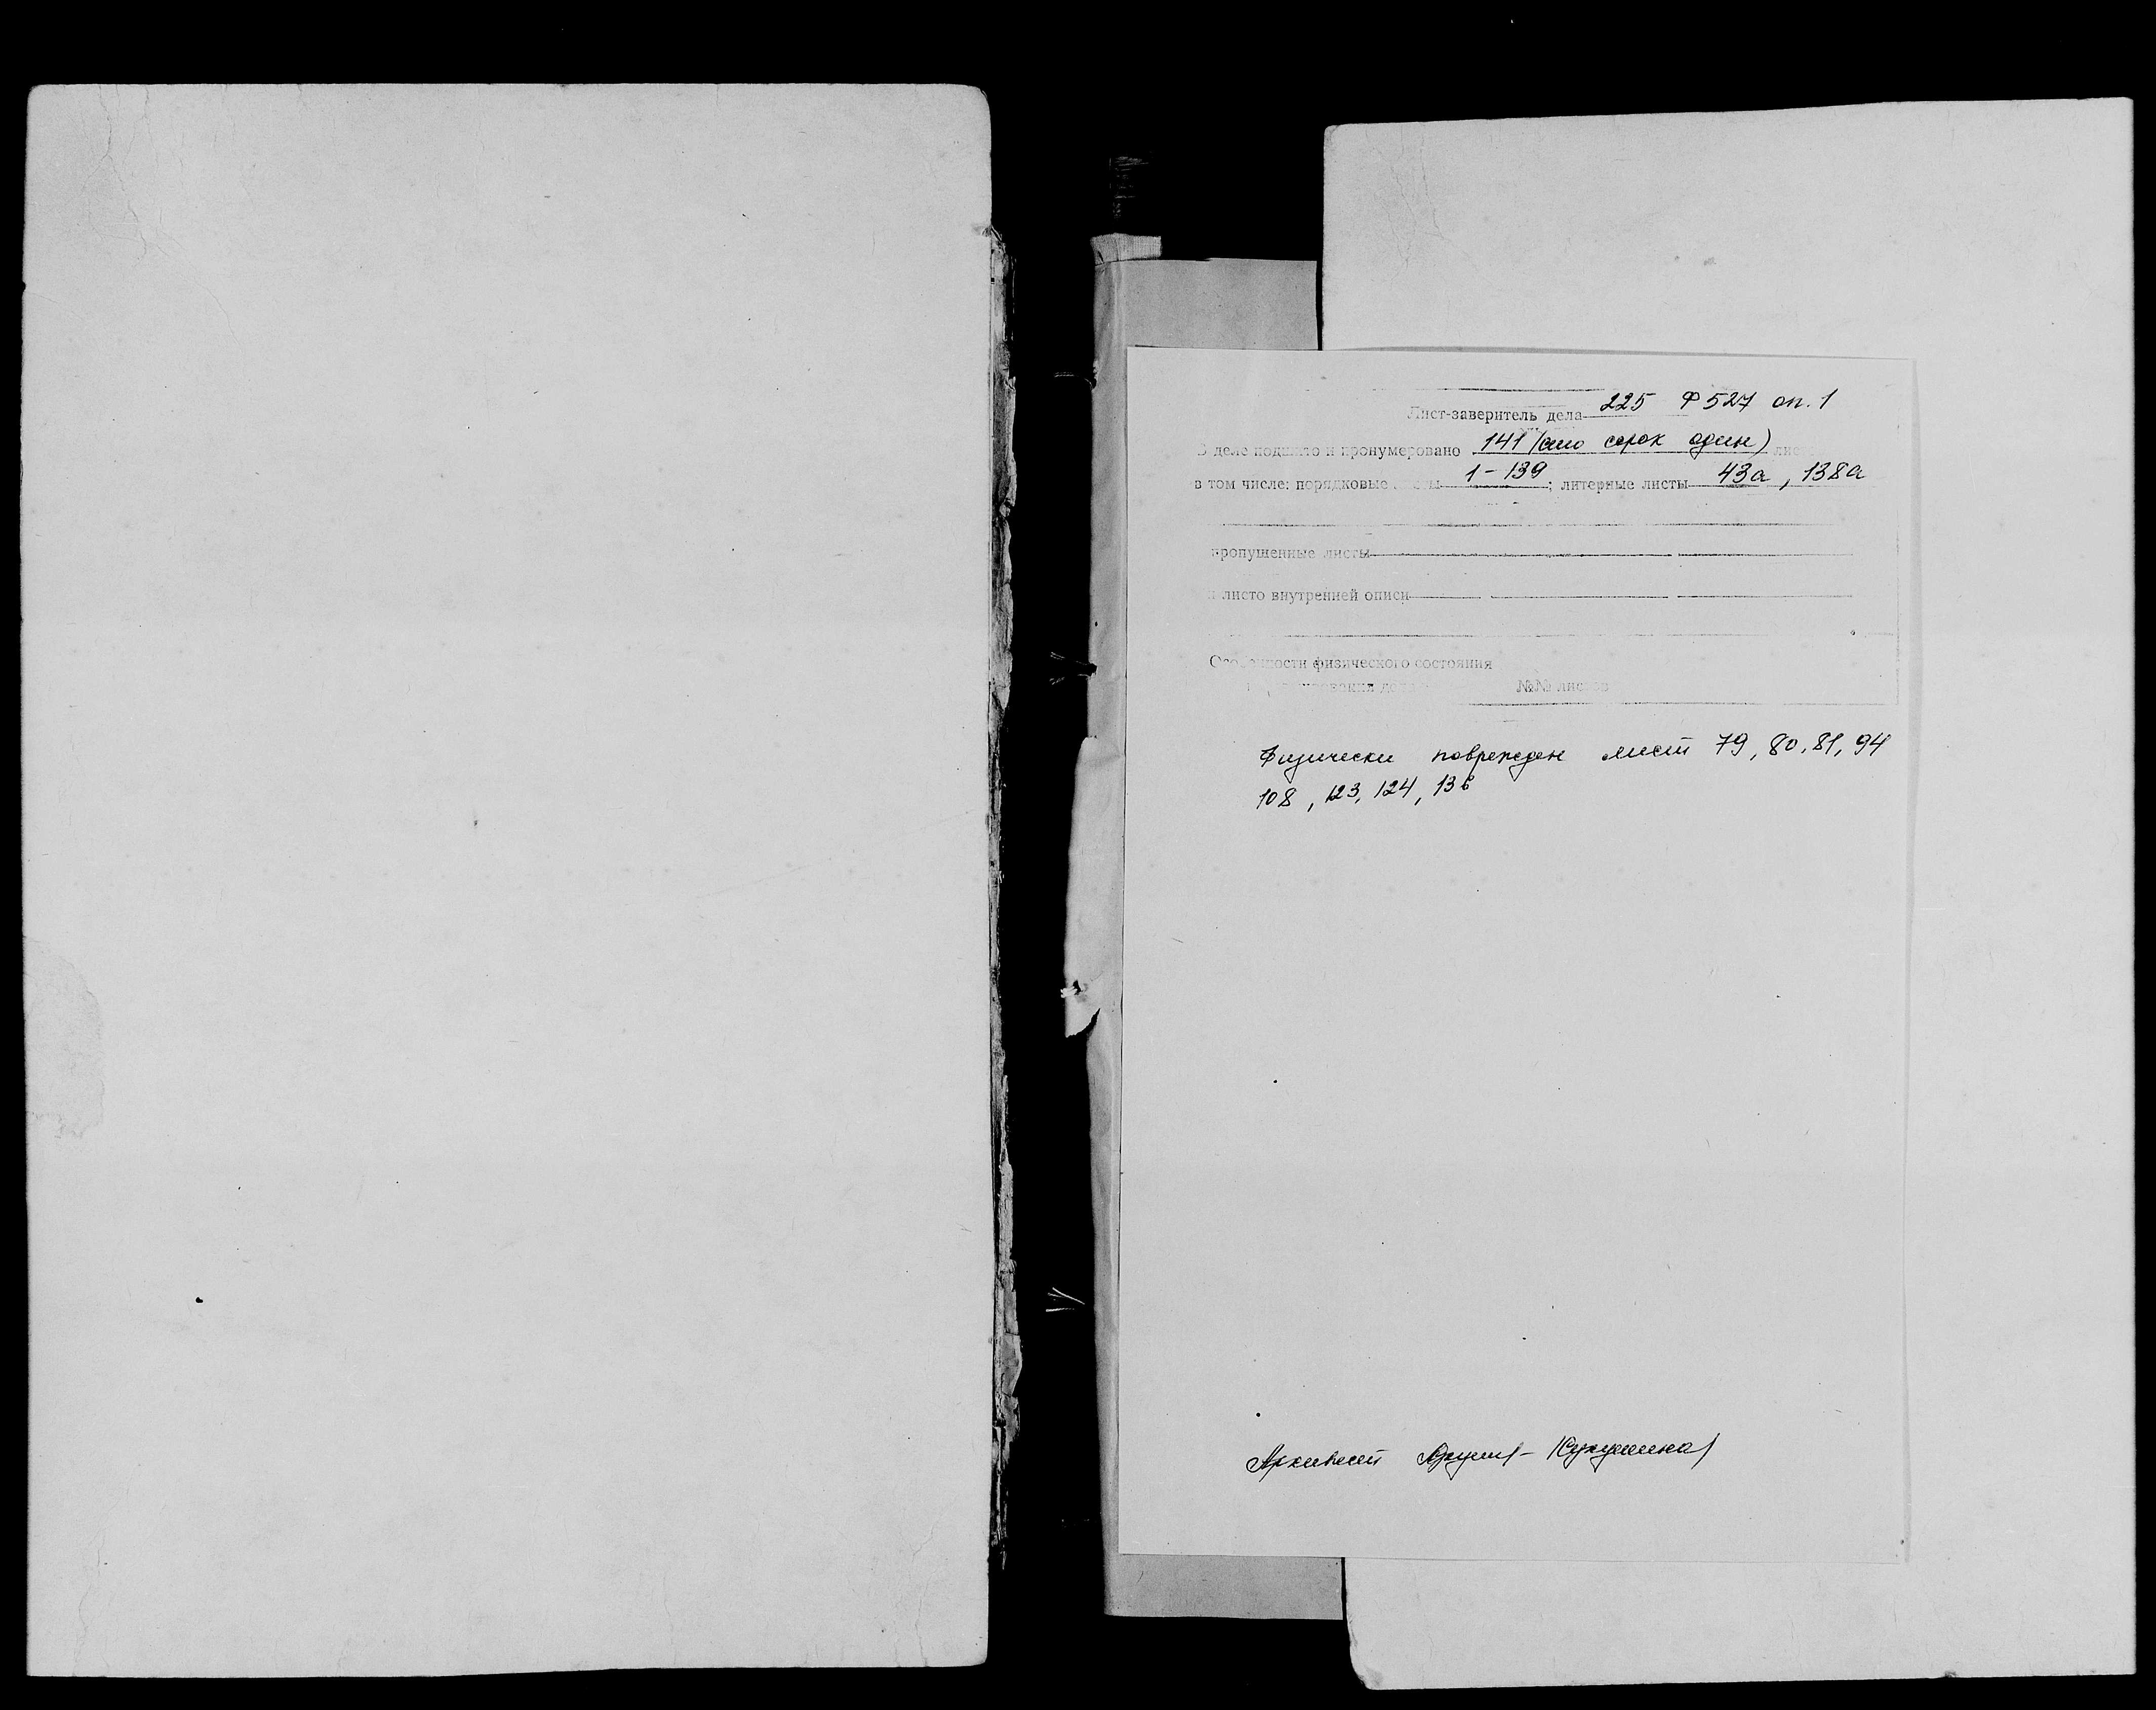 Лист-заверитель дела 225 Ф 527 оп. 1
В деле подшито и пронумеровано 141 (сто сорок один)
в том числе: порядковые листы 1-139; литерные листы 43а, 138а
пропущенные листы
листо внутренней описи
Особенности физического состояния
№№ листов
Физически поврежден лист 79, 80, 81, 94
108, 123, 124, 136
Архивист